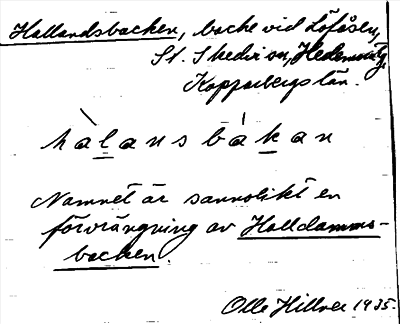 Hallandsbacken, backe vid Löfåsen,
St. Skedvi sn, Hedemora tg.
Kopparbergs län.
hàlansbákan
Namnet är sannolikt en
förvrängning av Halldamms-
backen.
Olle Hillner 1935.